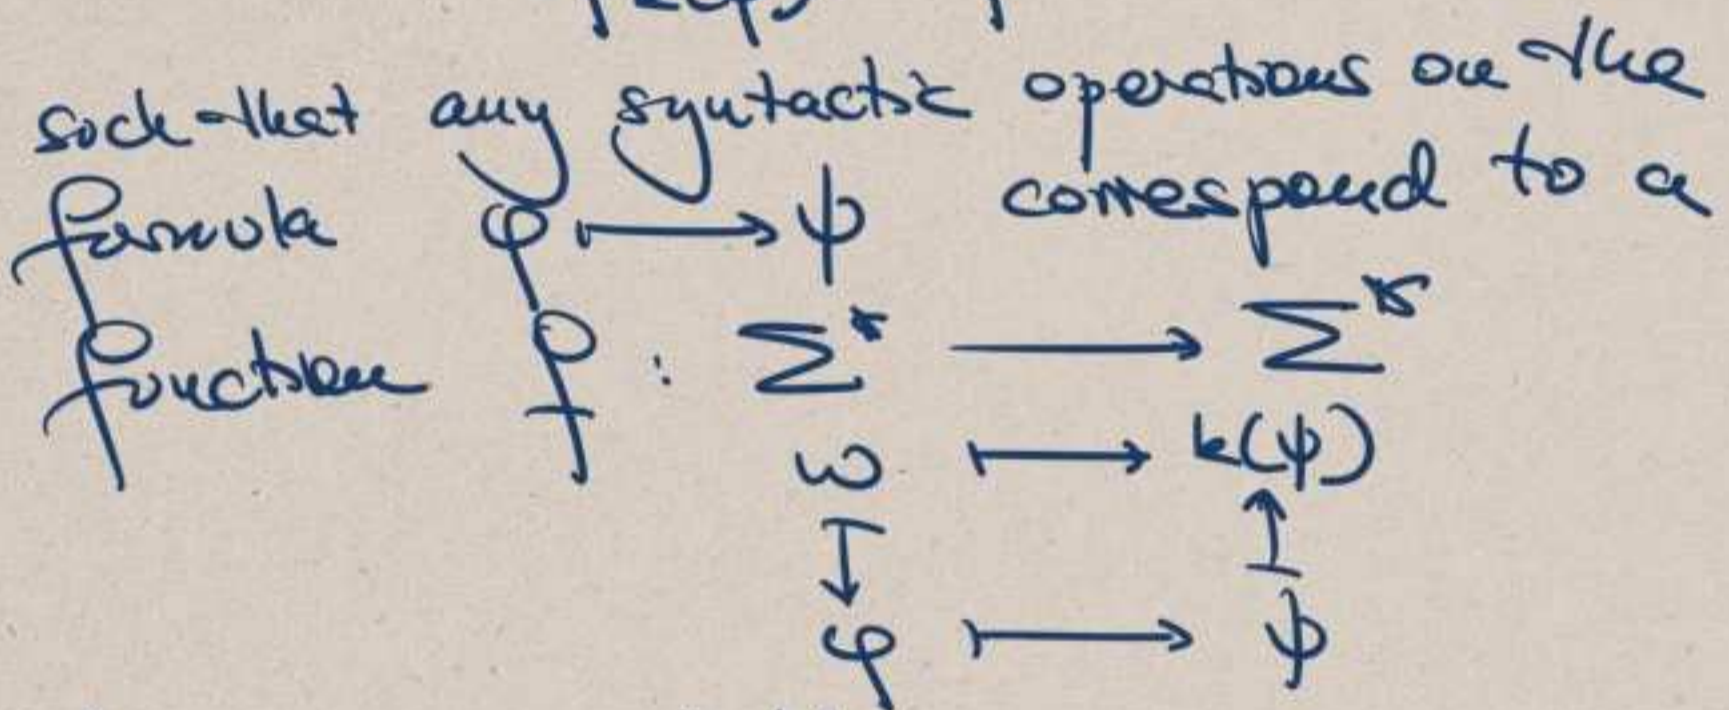 such that any syntactic operations on the
formula φ ↦ ψ correspond to a
function f : Σ* ⟶ Σ*
ω ⟼ k(ψ)
↧ ↥
φ ⟼ ψ